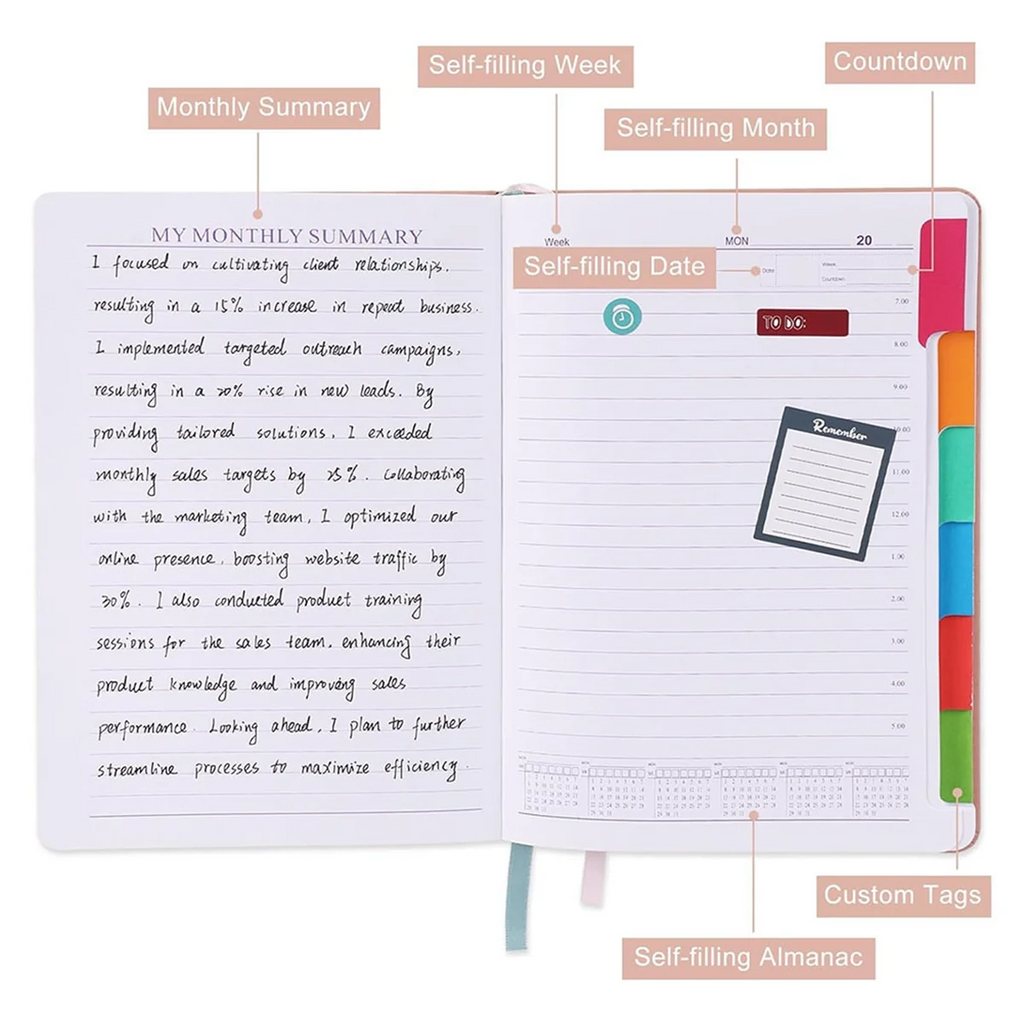 Self-filling Week
Countdown
Monthly Summary
Self-filling Month
MY MONTHLY SUMMARY
I focused on cultivating client relationships.
resulting in a 15% increase in repeat business.
I implemented targeted outreach campaigns,
resulting in a 20% rise in new leads. By
providing tailored solutions, I exceeded
monthly sales targets by 25%. Collaborating
with the marketing team, I optimized our
online presence, boosting website traffic by
30%. I also conducted product training
sessions for the sales team, enhancing their
product knowledge and improving sales
performance. Looking ahead, I plan to further
streamline processes to maximize efficiency.
Week
MON
20
Self-filling Date
Date
Week
Countdown
7.00
TO DO:
8.00
9.00
Remember
10.00
11.00
12.00
1.00
2.00
3.00
4.00
5.00
Custom Tags
Self-filling Almanac